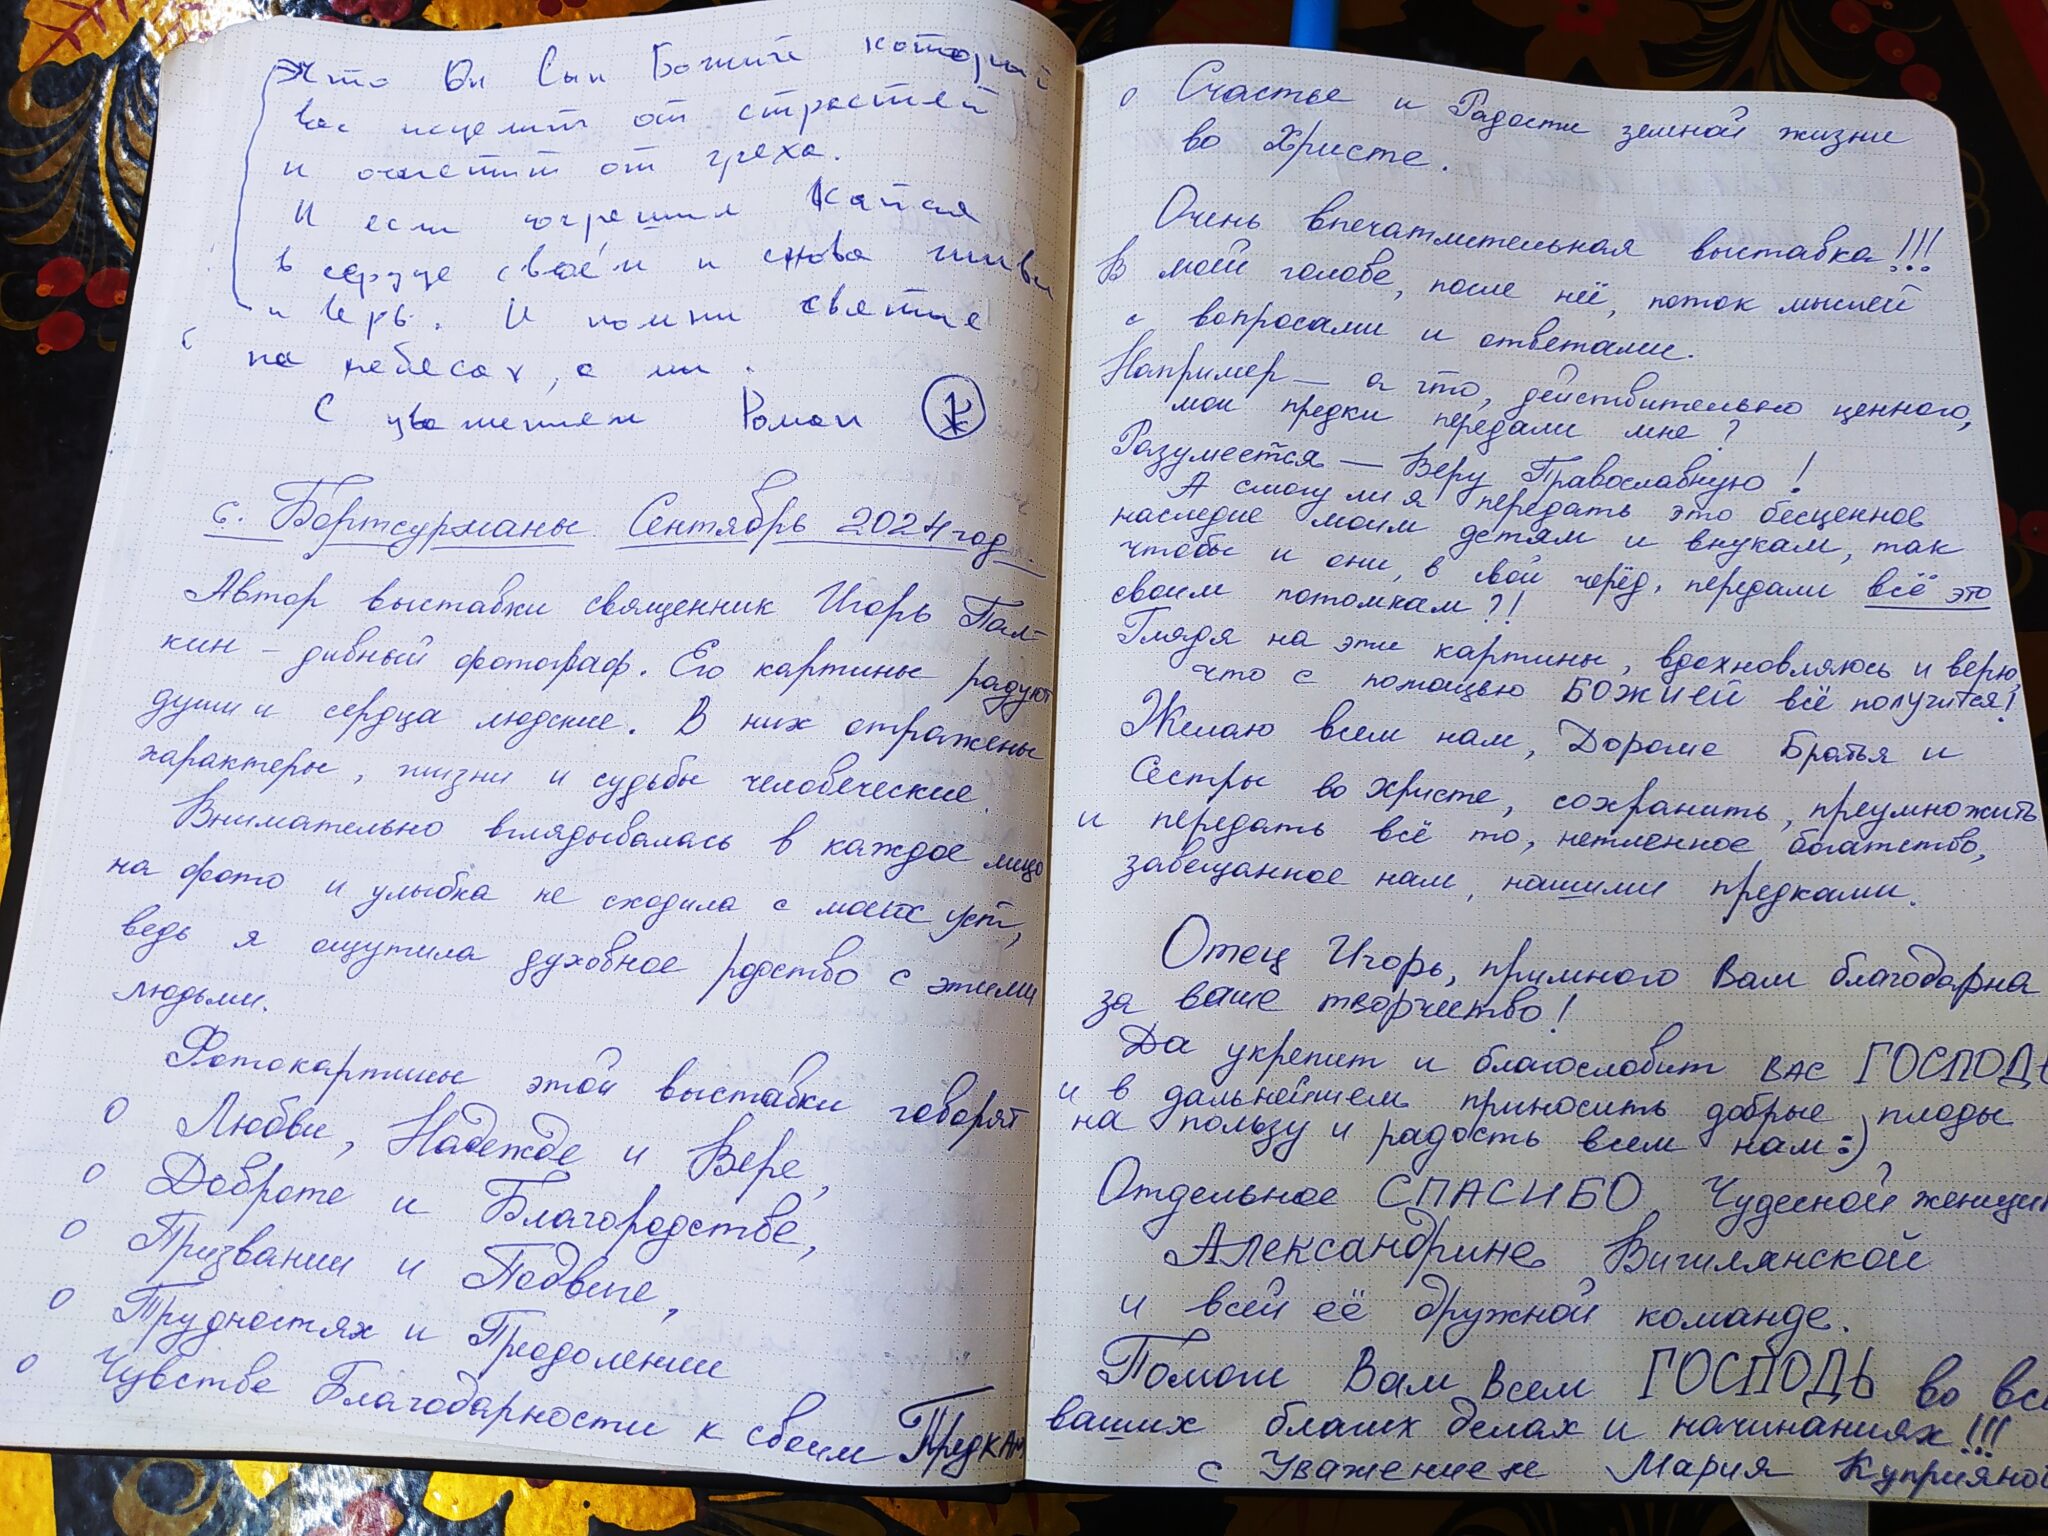 что Он Сын Божий который
вас исцелит от страстей
и очистит от греха.
И если согрешил кайся
в сердце своём и снова живи
и верь. И помни святые
на небесах, а мы.
С уважением Роман
с. Бортсурманы Сентябрь 2024 год.
Автор выставки священник Игорь Пал-
кин - дивный фотограф. Его картины радуют
души и сердца людские. В них отражены
характеры, жизни и судьбы человеческие.
Внимательно вглядывалась в каждое лицо
на фото и улыбка не сходила с моих уст,
ведь я ощутила духовное родство с этими
людьми.
Фотокартины этой выставки говорят
о Любви, Надежде и Вере,
о Доброте и Благородстве,
о Призвании и Подвиге,
о Трудностях и Преодолении
о Чувстве Благодарности к своим Предкам
о Счастье и Радости земной жизни
во Христе.
Очень впечатлительная выставка!!!
В моей голове, после неё, поток мыслей
с вопросами и ответами.
Например — а что, действительно ценного,
мои предки передали мне?
Разумеется — Веру Православную!
А смогу ли я передать это бесценное
наследие моим детям и внукам, так
чтобы и они, в свой черёд, передали всё это
своим потомкам?!
Глядя на эти картины, вдохновляюсь и верю,
что с помощью БОЖИЕЙ всё получится!
Желаю всем нам, Дорогие Братья и
Сестры во Христе, сохранить, преумножить
и передать всё то, нетленное богатство,
завещанное нам, нашими предками.
Отец Игорь, примного Вам благодарна
за ваше творчество!
Да укрепит и благословит вас ГОСПОДЬ
и в дальнейшем приносить добрые плоды
на пользу и радость всем нам :)
Отдельное СПАСИБО Чудесной женщин
Александрине Вигилянской
и всей её дружной команде.
Помоги Вам Всем ГОСПОДЬ во все
ваших благих делах и начинаниях!!!
с Уважением Мария Куприяно